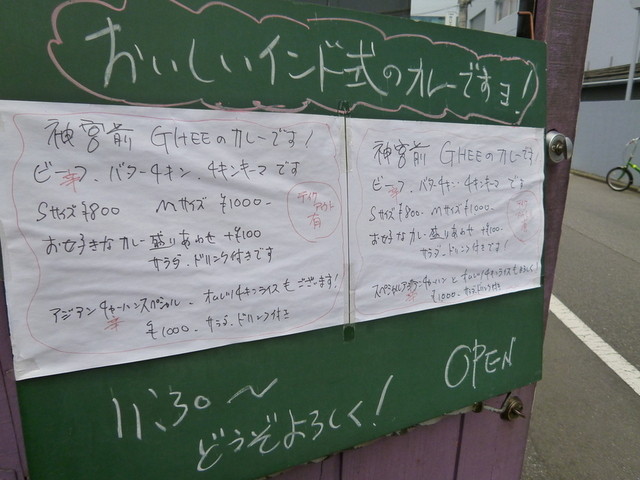 おいしいインド式のカレーですヨ!
神宮前 GHEEのカレーです!
ビーフ、バターチキン、チキンキーマです
辛
Sサイズ¥800 Mサイズ ¥1000-
テイクアウト
有
お好きなカレー盛りあわせ +¥100
サラダ・ドリンク付きです
アジアンチャーハンスペシャル、オムレツチキンライスもございます!
辛
¥1000- サラダ・ドリンク付き
神宮前 GHEEのカレーです!
ビーフ、バターチキン、チキンキーマです
辛
Sサイズ¥800- Mサイズ¥1000-
お好きなカレー盛りあわせ +¥100
サラダ・ドリンク付きです!
スペシャルアジアンチャーハンとオムレツチキンライスもよろしく!
¥1000- サラダ・ドリンク付き
OPEN
11:30〜
どうぞよろしく!